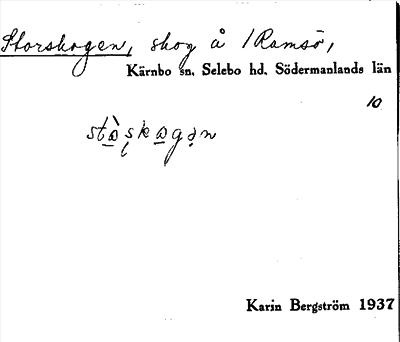 Storskogen, skog å /Ramsö,
Kärnbo sn. Selebo hd. Södermanlands län
10
Karin Bergström 1937